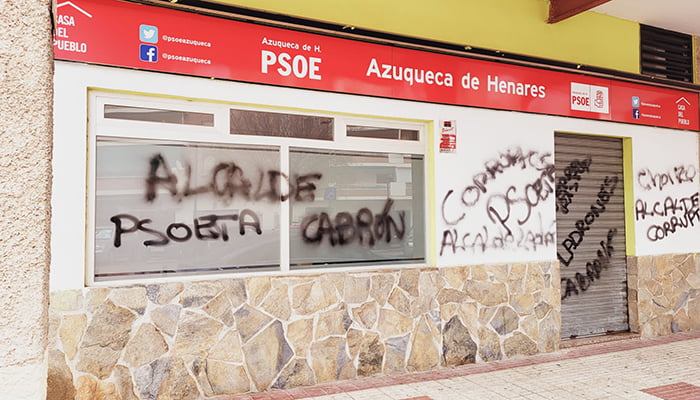 CASA
DEL
PUEBLO
@psoeazuqueca
@psoeazuqueca
Azuqueca de H.
PSOE
Azuqueca de Henares
PSOE
CASA
DEL
PUEBLO
ALCALDE
PSOETA CABRÓN
CORRUPTOS
PSOETA
ALCALDE
LADRONES
CABRÓN
CHORIZO
ALCALDE
CORRUPTO